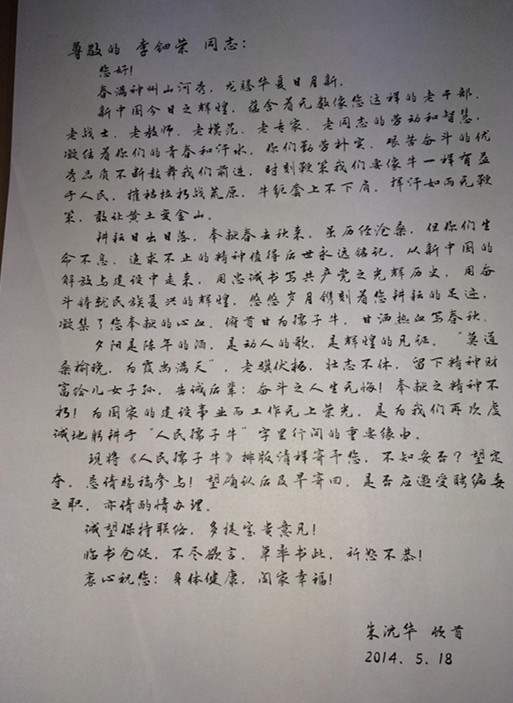 尊敬的 李钿荣 同志：
您好！
春满神州山河秀，龙腾华夏日月新。
新中国今日之辉煌，蕴含着无数像您这样的老干部、
老战士、老教师、老模范、老专家、老同志的劳动和智慧，
凝结着你们的青春和汗水，你们勤劳朴实、艰苦奋斗的优
秀品质不断鼓舞我们前进，时刻鞭策我们要像牛一样有益
于人民，摧枯拉朽战荒原，牛轭套上不下肩，挥汗如雨无鞭
策，敢让黄土变金山。
耕耘日出日落，奉献春去秋来，虽历经沧桑，但你们生
命不息，追求不止的精神值得后世永远铭记，从新中国的
解放与建设中走来，用忠诚书写共产党之光辉历史，用奋
斗铸就民族复兴的辉煌，悠悠岁月镌刻着您耕耘的足迹，
凝集了您奉献的心血，俯首甘为孺子牛，甘洒热血写春秋。
夕阳是陈年的酒，是动人的歌，是辉煌的见证，“莫道
桑榆晚，为霞尚满天”，老骥伏枥，壮志不休，留下精神财
富给儿女子孙，告诫后辈：奋斗之人生无悔！奉献之精神不
朽！为国家的建设事业而工作无上荣光，是为我们再次虔
诚地躬耕于“人民孺子牛”字里行间的重要缘由。
现将《人民孺子牛》排版清样寄于您，不知妥否？望定
夺，恳请赐稿参与！望确认后及早寄回，是否应邀受聘编委
之职，亦请酌情办理。
诚望保持联络，多提宝贵意见！
临书仓促，不尽欲言，草率书此，祈恕不恭！
衷心祝您：身体健康，阖家幸福！
朱沈华 顿首
2014. 5. 18